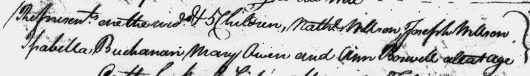 The present are the wid. & 5 Children, Nathl. Willson Joseph Willson
Isabella Buchanan, Mary Owen and Ann Boswell all at age